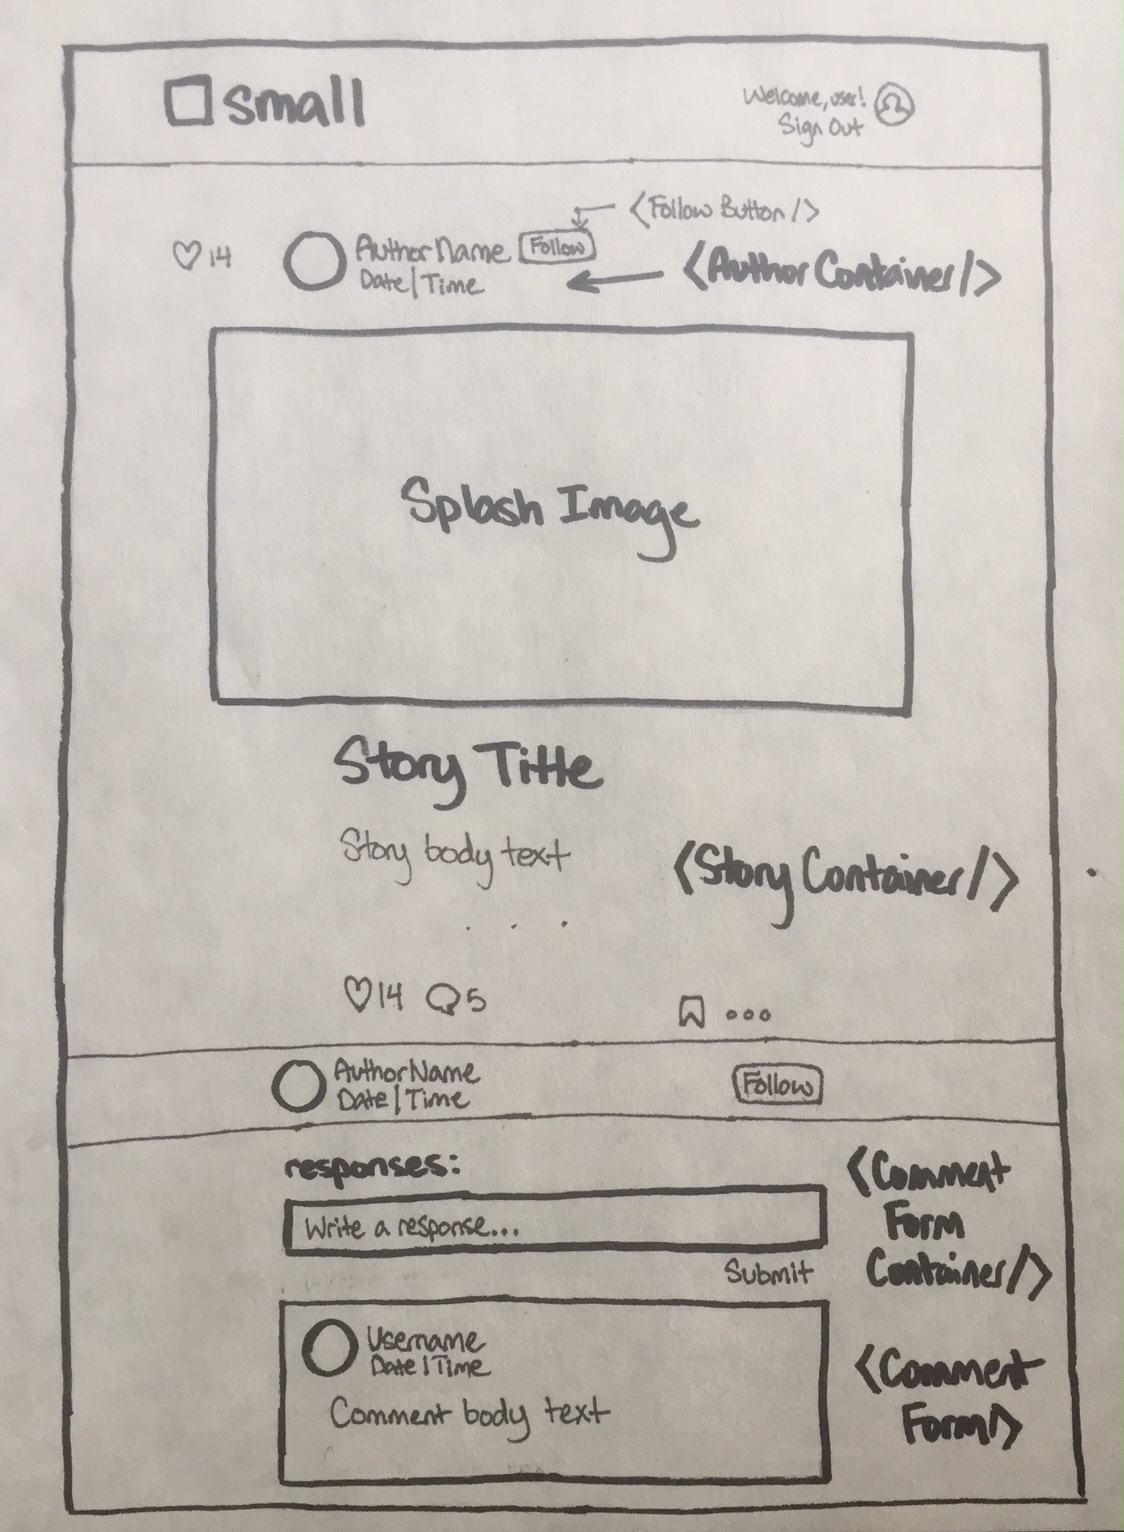 small
Welcome, user!
Sign Out
<Follow Button/>
14
AuthorName
Follow
Date|Time
<AuthorContainer/>
Splash Image
Story Title
Story body text
<StoryContainer/>
. . .
14
5
AuthorName
Date|Time
Follow
responses:
Write a response...
Submit
<Comment
Form
Container/>
Username
Date|Time
Comment body text
<Comment
Form/>